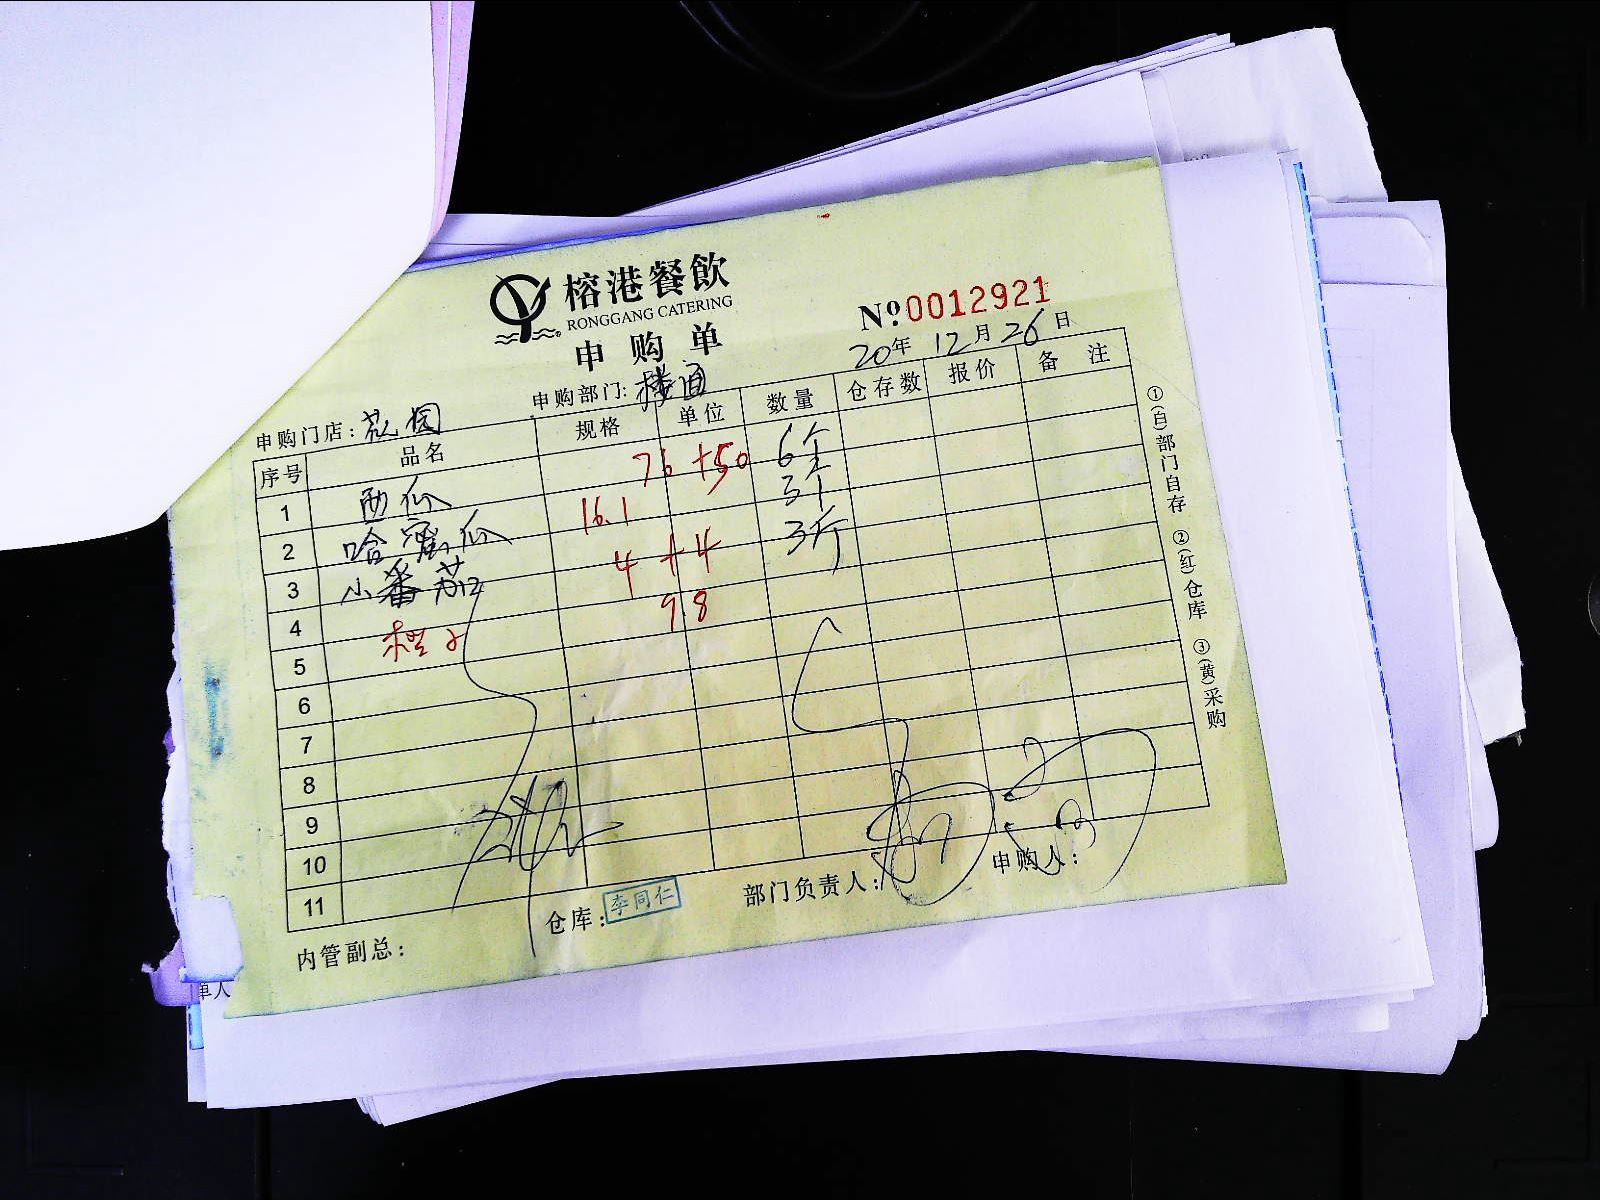 榕港餐飲
RONGGANG CATERING
申购单
Nº0012921
20年12月26日
申购门店：花园 申购部门：楼面
序号 品名 规格 单位 数量 仓存数 报价 备注
1 西瓜 76+50 6个
2 哈密瓜 16.1 3个
3 小番茄 4+4 3斤
4 橙子 9.8
5
6
7
8
9
10
11
内管副总： 仓库：李同仁 部门负责人： 申购人：
①(白)部门自存 ②(红)仓库 ③(黄)采购
单人